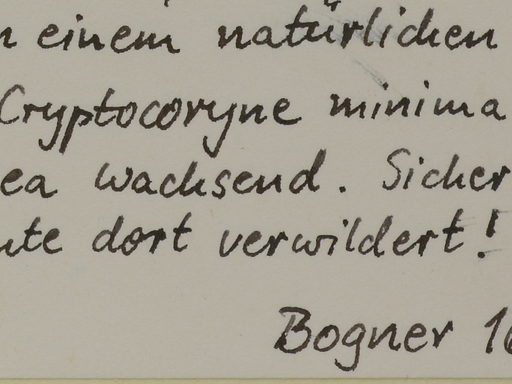 n einem natürlichen
Cryptocoryne minima
ea wachsend. Sicher
ute dort verwildert!
Bogner 16